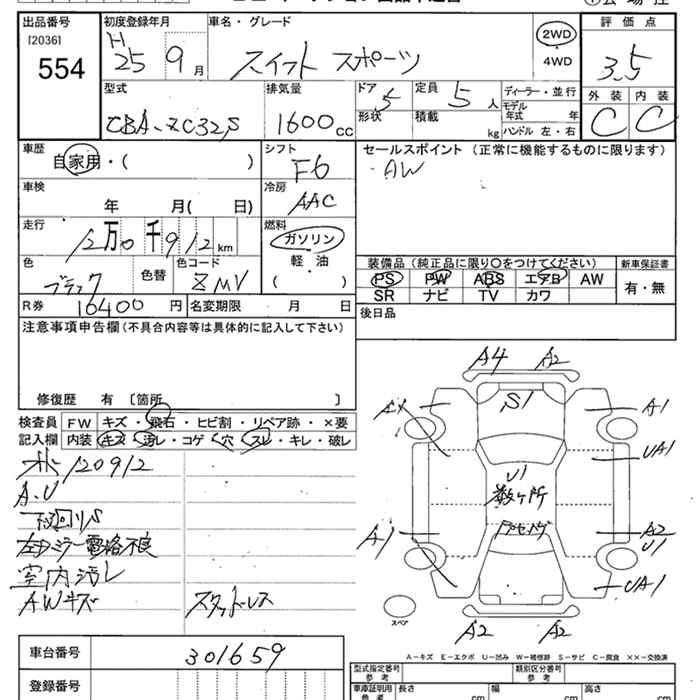 出品番号 初度登録年月 車名・グレード 評価点
[2036] 554 H25 9月 スイフト スポーツ 2WD・4WD 3.5
型式 排気量 ドア 定員 ディーラー・並行 外装 内装
CBA-ZC32S 1600cc 5 5人 モデル年式 年 C C
形状 積載 kg ハンドル 左・右
車歴 シフト セールスポイント (正常に機能するものに限ります)
自家用・( ) F6 AW
車検 冷房
年 月( 日) AAC
走行 燃料
12万0千912km ガソリン
色 色替 色コード 軽・油
ブラック ZMV ( )
装備品 (純正品に限り○をつけてください) 新車保証書
PS PW ABS エアB AW 有・無
SR ナビ TV カワ
R券 16400円 名変期限 月 日 後日品
注意事項申告欄 (不具合内容等は具体的に記入して下さい)
修復歴 有 〔箇所 〕
検査員 FW キズ・飛石・ヒビ割・リペア跡・×要
記入欄 内装 キズ・汚レ・コゲ・穴・スレ・キレ・破レ
120912
A.U
下回りS
左ドミラー電格不良
室内汚レ
AWキズ スタッドレス
A4 A2
A1 S1 A1
UA1
U1
数ヶ所
A1 A2
U1
UA1
スペア
A2 A2
車台番号 301659
A-キズ E-エクボ U-凹み W-補修跡 S-サビ C-腐食 ××-交換済
型式指定番号 参考 類別区分番号 参考
登録番号 車庫証明用 参考 長さ cm 幅 cm 高さ cm